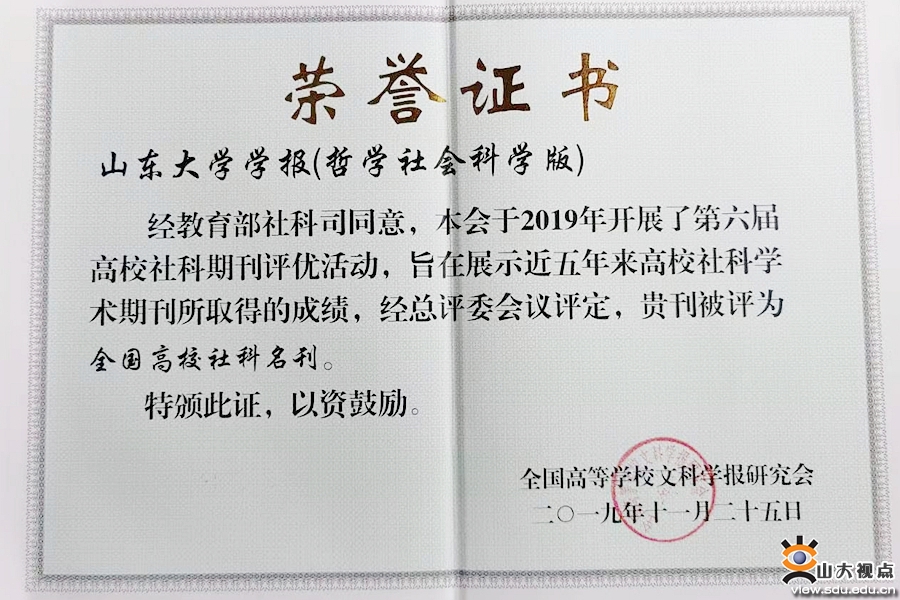 荣誉证书
山东大学学报(哲学社会科学版)
经教育部社科司同意，本会于2019年开展了第六届
高校社科期刊评优活动，旨在展示近五年来高校社科学
术期刊所取得的成绩，经总评委会议评定，贵刊被评为
全国高校社科名刊。
特颁此证，以资鼓励。
全国高等学校文科学报研究会
二〇一九年十一月二十五日
山大视点
view.sdu.edu.cn